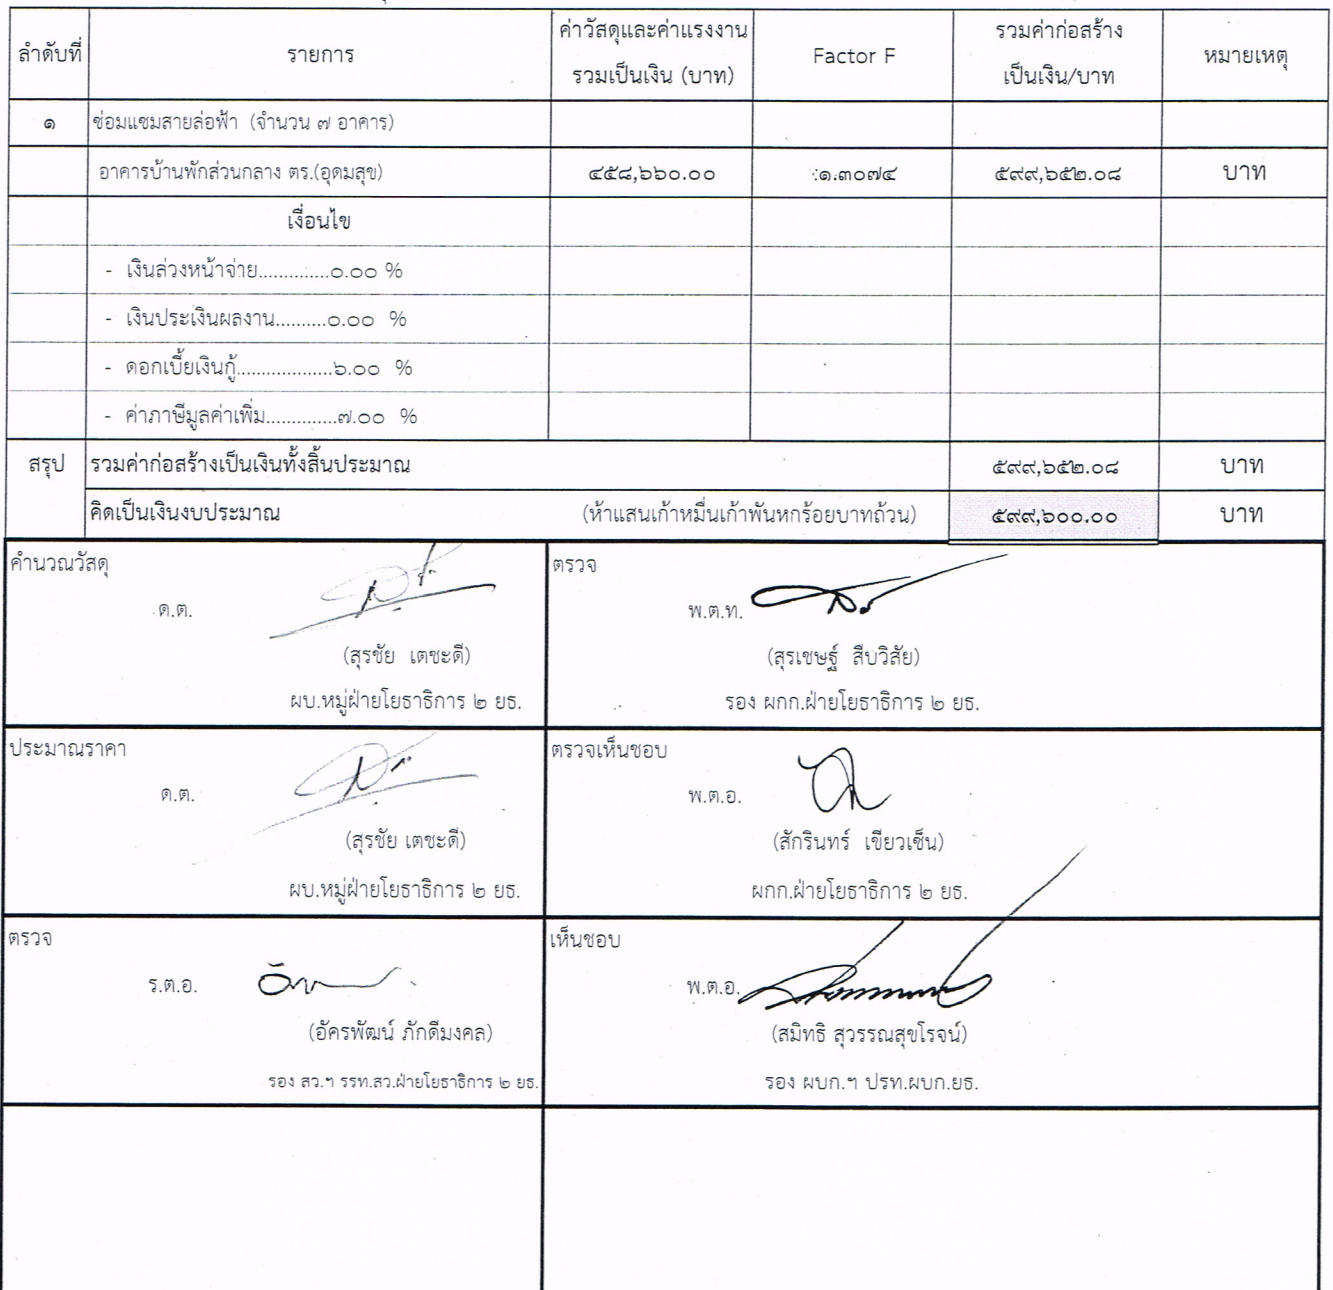 ลำดับที่ รายการ ค่าวัสดุและค่าแรงงาน รวมเป็นเงิน (บาท) Factor F รวมค่าก่อสร้าง เป็นเงิน/บาท หมายเหตุ
๑ ซ่อมแซมสายล่อฟ้า (จำนวน ๗ อาคาร)
อาคารบ้านพักส่วนกลาง ตร.(อุดมสุข) ๔๕๘,๖๖๐.๐๐ ๑.๓๐๗๔ ๕๙๙,๖๕๒.๐๘ บาท
เงื่อนไข
- เงินล่วงหน้าจ่าย.............๐.๐๐ %
- เงินประเงินผลงาน..........๐.๐๐ %
- ดอกเบี้ยเงินกู้...................๖.๐๐ %
- ค่าภาษีมูลค่าเพิ่ม..............๗.๐๐ %
สรุป รวมค่าก่อสร้างเป็นเงินทั้งสิ้นประมาณ ๕๙๙,๖๕๒.๐๘ บาท
คิดเป็นเงินงบประมาณ (ห้าแสนเก้าหมื่นเก้าพันหกร้อยบาทถ้วน) ๕๙๙,๖๐๐.๐๐ บาท
คำนวณวัสดุ
ด.ต.
(สุรชัย เตชะดี)
ผบ.หมู่ฝ่ายโยธาธิการ ๒ ยธ.
ตรวจ
พ.ต.ท.
(สุรเชษฐ์ สืบวิสัย)
รอง ผกก.ฝ่ายโยธาธิการ ๒ ยธ.
ประมาณราคา
ด.ต.
(สุรชัย เตชะดี)
ผบ.หมู่ฝ่ายโยธาธิการ ๒ ยธ.
ตรวจเห็นชอบ
พ.ต.อ.
(สักรินทร์ เขียวเซ็น)
ผกก.ฝ่ายโยธาธิการ ๒ ยธ.
ตรวจ
ร.ต.อ.
(อัครพัฒน์ ภักดีมงคล)
รอง สว.ฯ รรท.สว.ฝ่ายโยธาธิการ ๒ ยธ.
เห็นชอบ
พ.ต.อ.
(สมิทธิ สุวรรณสุขโรจน์)
รอง ผบก.ฯ ปรท.ผบก.ยธ.